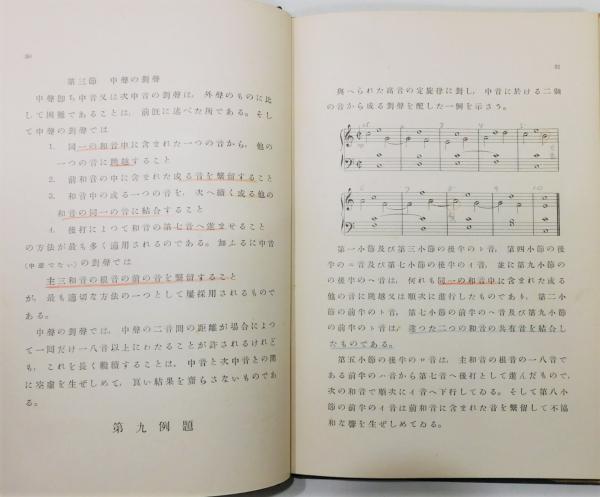 第三節　中聲の對聲
中聲卽ち中音又は次中音の對聲は、外聲のものに比
して困難であることは、前旣に述べた所である。そし
て中聲の對聲では
1. 同一の和音中に含まれた一つの音から、他の
一つの音に跳越すること
2. 前和音の中に含まれた或る音を繫留すること
3. 和音中の或る一つの音を、次へ續く或る他の
和音の同一の音に結合すること
4. 後打によつて和音の第七音へ進ませること
の方法が最も多く適用されるのである。加ふるに中音
(中聲でない)の對聲では
主三和音の根音の前の音を繫留すること
が、最も適切な方法の一つとして屢採用されるものであ
る。
中聲の對聲では、中聲の二音間の距離が場合によつ
て一回だけ一八音以上にわたることが許されるけれど
も、これを長く繼續することは、中音と次中音との間
に空虛を生ぜしめて、良い結果を齎らさないものであ
る。
第九例題
與へられた高音の定旋律に對し、中音に於ける二個
の音から成る對聲を配した一例を示さう。
第一小節及び第三小節の後半のト音、第四小節の後
半のニ音及び第七小節の後半のイ音、並に第九小節の
の後半のヘ音は、何れも同一の和音中に含まれた或る
他の音に跳越又は順次に進行したものであり、第二小
節の前半のト音、第七小節の前半のヘ音及び第九小節
の前半のト音は、違つた二つの和音の共有音を結合し
たものである。
第五小節の後半のロ音は、主和音の根音の一八音で
ある前半のハ音から第七音へ後打として進んだもので、
次の和音で順次にイ音へ下行してゐる。そして第八小
節の前半のイ音は前和音に含まれた音を繫留して不協
和な響を生ぜしめてゐる。